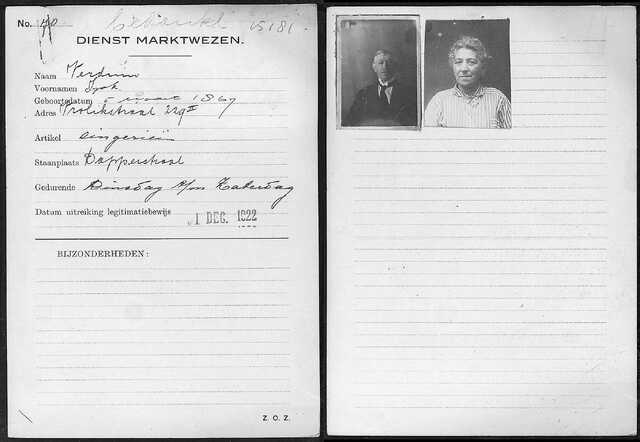 No. 15181
DIENST MARKTWEZEN.
Naam Verduin
Voornamen
Geboortedatum 5 maart 1867
Adres Prolikstraat 229 II
Artikel
Staanplaats Dapperstraat
Gedurende Dinsdag t/m Zaterdag
Datum uitreiking legitimatiebewijs 1 DEC. 1922
BIJZONDERHEDEN:
Z. O. Z.